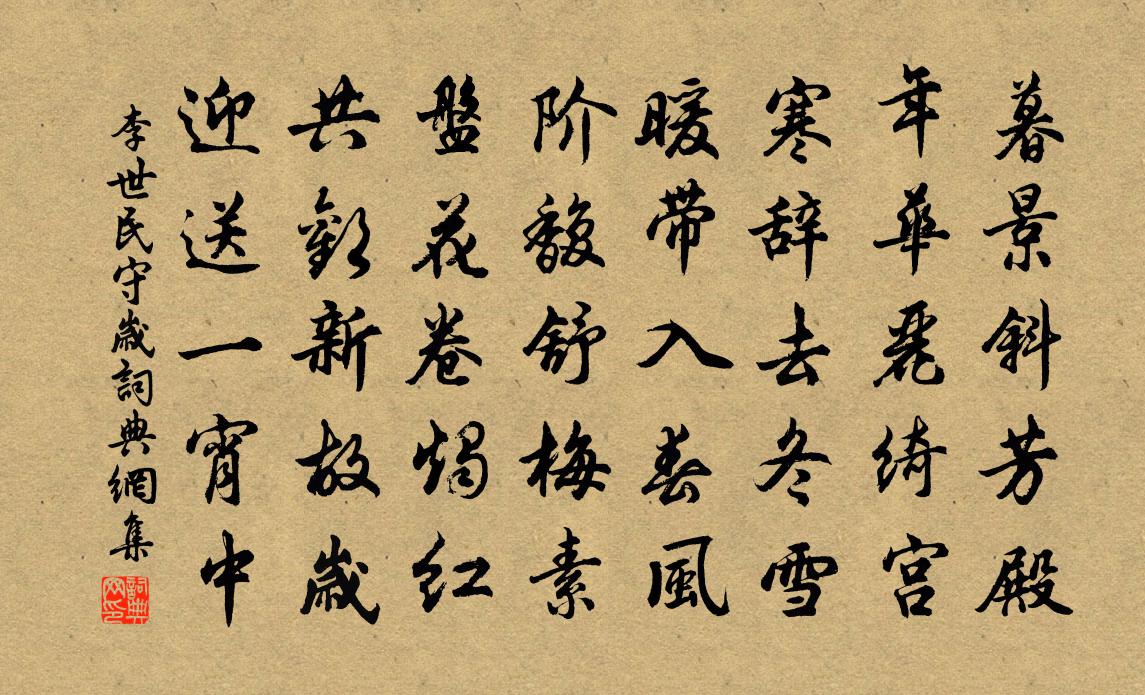 暮景斜芳殿
年華麗綺宮
寒辞去冬雪
暖带入春風
阶馥舒梅素
盤花卷燭红
共歡新故歲
迎送一宵中
李世民守歲詞典網集
詞典网印